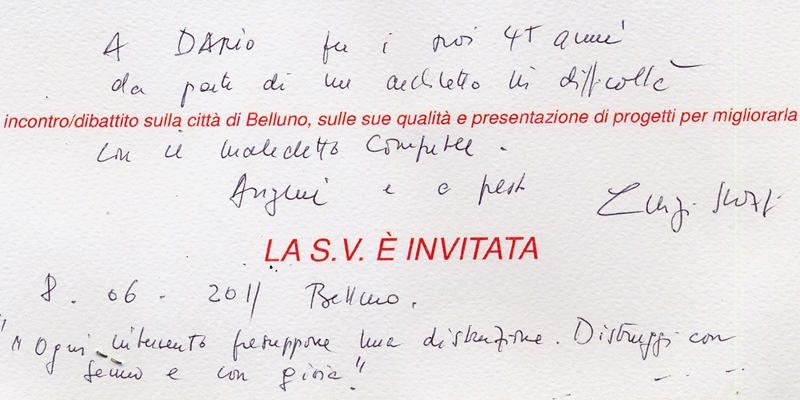 A DARIO per i suoi 45 anni
da parte di un architetto in difficoltà
incontro/dibattito sulla città di Belluno, sulle sue qualità e presentazione di progetti per migliorarla
con il maledetto computer.
Auguri e a presto
Luigi Snozzi
LA S.V. È INVITATA
8. 06 - 2011 Belluno.
"Ogni intervento presuppone una distruzione. Distruggi con
senno e con gioia"